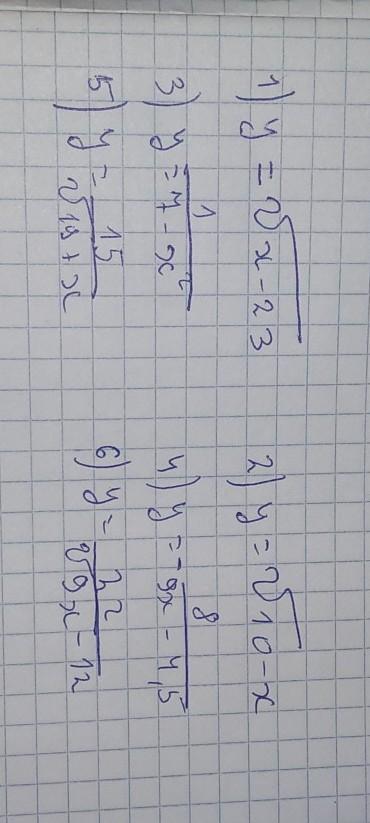 1) y = √x - 23  2) y = √10 - x
3) y = 1/7 - x²  4) y = 8/-9x - 4,5
5) y = 15/√15 + x  6) y = 3,2/√9x - 12